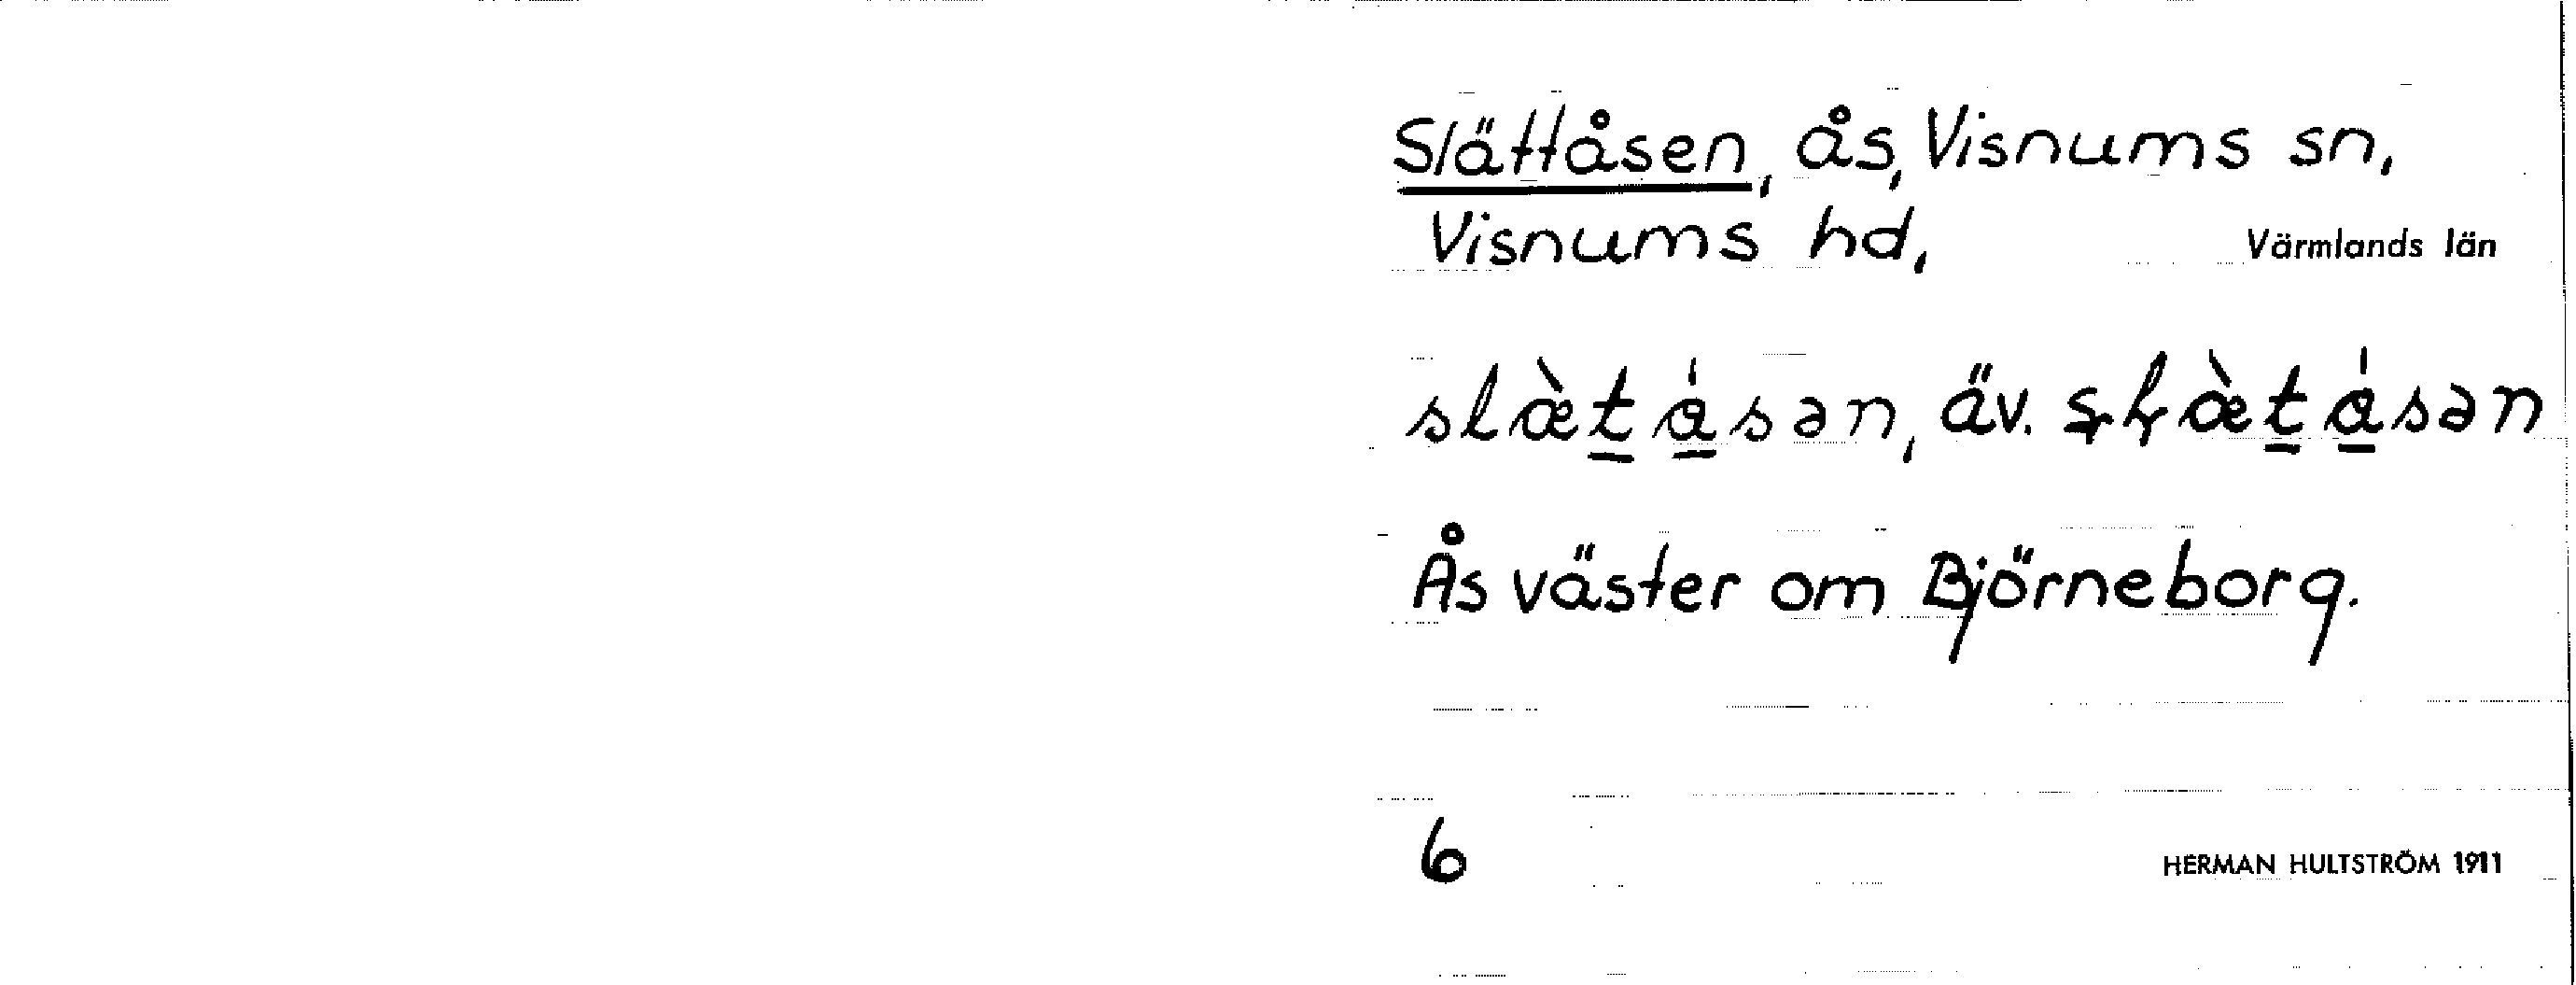 Slättåsen, ås, Visnums sn,
Visnums hd, Värmlands län
slæ̀t̲ǻ̲sən, äv. ʂɭæ̀t̲ǻ̲sən
Ås väster om Björneborg.
6 HERMAN HULTSTRÖM 1911